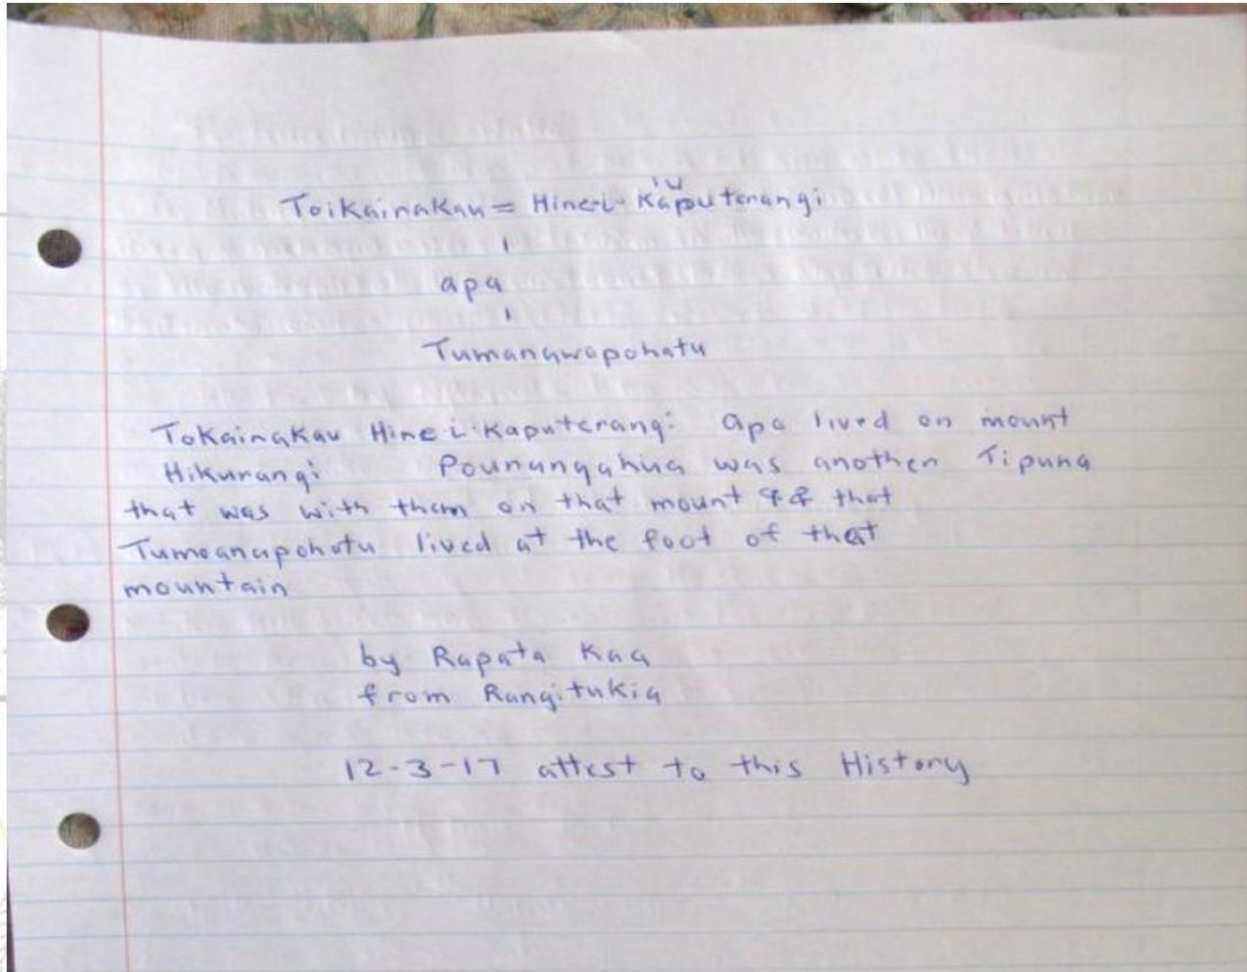 Toikainakau = Hine-i-Kaputerangi
iw
apa
Tumanawapohatu
Tokainakau Hine i Kaputerangi apa lived on mount
Hikurangi Pounangahua was another Tipuna
that was with them on that mount & that
Tumoanapohatu lived at the foot of that
mountain
by Rapata Kaa
from Rangitukia
12-3-17 attest to this History